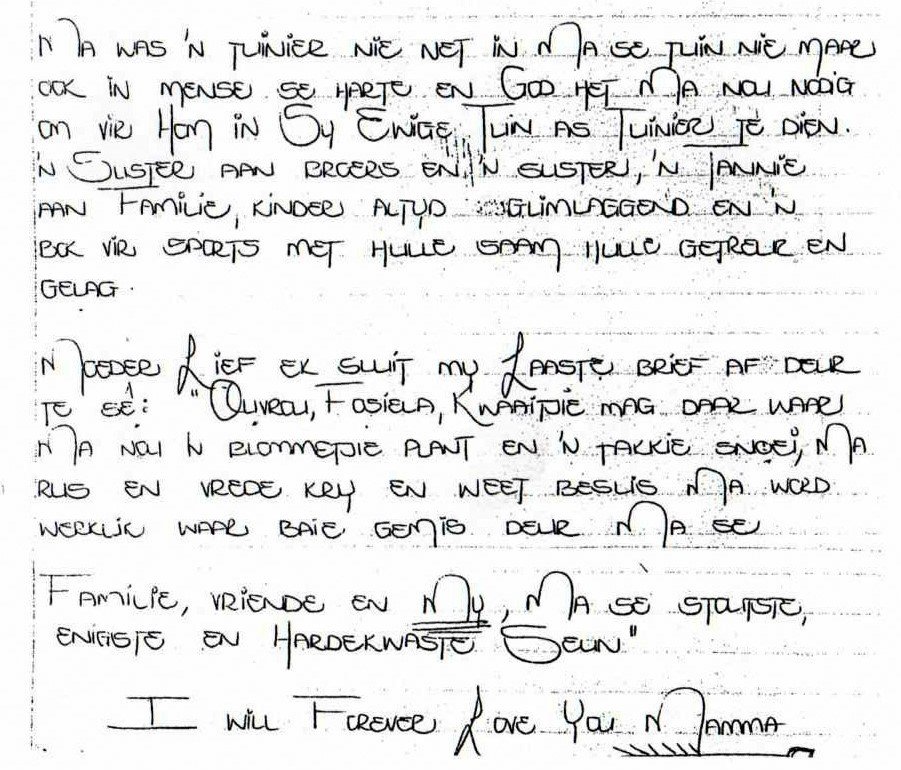 Ma was 'n tuinier nie net in Ma se tuin nie maar
ook in mense se harte en God het Ma nou nodig
om vir Hom in Sy Enige Tuin as Tuinier te dien.
'n Suster aan broers en 'n suster, 'n Tannie
aan Familie, kinder altyd glimlaggend en 'n
bok vir sports met hulle saam hulle getreur en
gelag.
Moeder Lief ek sluit my Laaste brief af deur
te sê: "Ouvrou, Fosiela, Kwaaitjie mag daar waar
Ma nou 'n blommetjie plant en 'n takkie snoei, Ma
rus en vrede kry en weet beslis Ma word
werklik waar baie gemis deur Ma se
Familie, vriende en My, Ma se stoutste,
enigste en Hardekwaste Seun"
I will Forever Love You Mamma